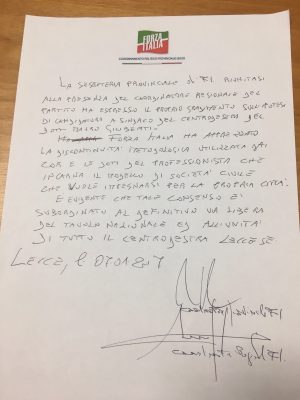 FORZA
ITALIA
COORDINAMENTO POLITICO PROVINCIALE LECCE
LA SEGRETERIA PROVINCIALE DI FI RIUNITASI
ALLA PRESENZA DEL COORDINATORE REGIONALE DEL
PARTITO HA ESPRESSO IL PROPRIO GRADIMENTO SULL'IPOTESI
DI CANDIDATURA A SINDACO DEL CENTRODESTRA DEL
DOTT. MAURO GIUBERTI.
FORZA ITALIA HA APPREZZATO
LA DISCONTINUITÀ UTILIZZATA DAI
COR E LE DOTI DEL PROFESSIONISTA CHE
INCARNA IL MODELLO DI SOCIETÀ CIVILE
CHE VUOLE IMPEGNARSI PER LA PROPRIA CITTÀ.
È EVIDENTE CHE TALE CONSENSO È
SUBORDINATO AL DEFINITIVO VIA LIBERA
DEL TAVOLO NAZIONALE ED ALL'UNITÀ
DI TUTTO IL CENTRODESTRA LECCESE.
LECCE, lì
FI
FI.